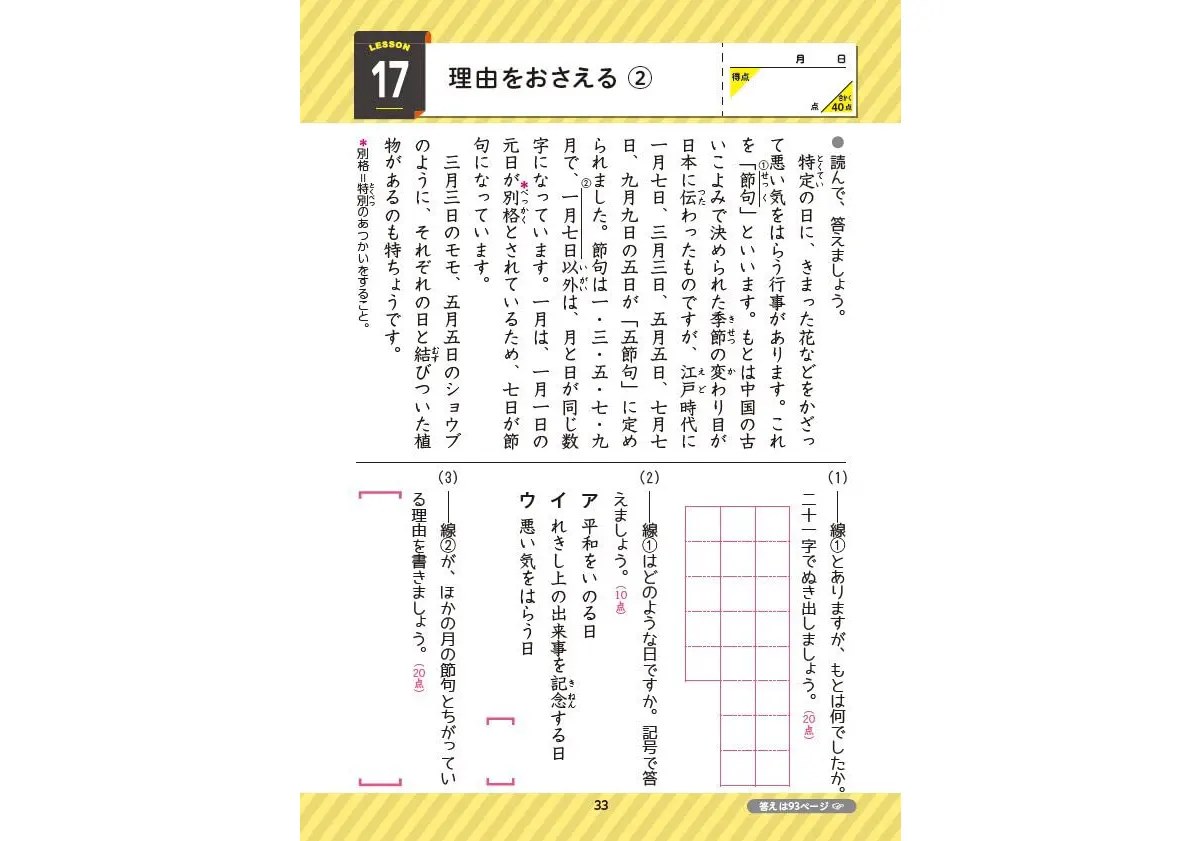 LESSON
17
理由をおさえる ②
月 日
得点
点
ごうかく
40点
● 読んで、答えましょう。
特定の日に、きまった花などをかざっ
て悪い気をはらう行事があります。これ
を「節句」といいます。もとは中国の古
いこよみで決められた季節の変わり目が
日本に伝わったものですが、江戸時代に
一月七日、三月三日、五月五日、七月七
日、九月九日の五日が「五節句」に定め
られました。節句は一・三・五・七・九
月で、一月七日以外は、月と日が同じ数
字になっています。一月は、一月一日の
元日が*別格とされているため、七日が節
句になっています。
三月三日のモモ、五月五日のショウブ
のように、それぞれの日と結びついた植
物があるのも特ちょうです。
*別格=特別のあつかいをすること。
(1) ――線①とありますが、もとは何でしたか。
二十一字でぬき出しましょう。(20点)
(2) ――線①はどのような日ですか。記号で答
えましょう。(10点)
ア 平和をいのる日
イ れきし上の出来事を記念する日
ウ 悪い気をはらう日
(3) ――線②が、ほかの月の節句とちがってい
る理由を書きましょう。(20点)
33
答えは93ページ